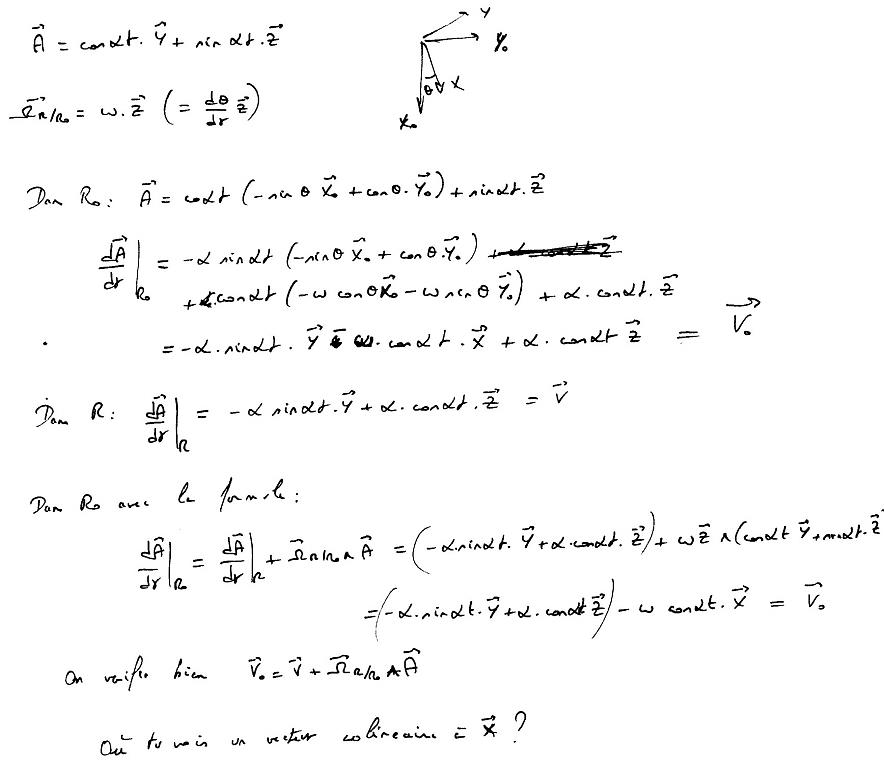 A⃗ = cos αt. Y⃗ + sin αt. Z⃗
Y
Y₀
θ
X
X₀
Ω⃗ R/R₀ = ω. Z⃗ (= dθ/dt Z⃗)
Dans R₀: A⃗ = cos αt (-sin θ X⃗₀ + cos θ. Y⃗₀) + sin αt. Z⃗
dA⃗/dt |R₀ = -α sin αt (-sin θ X⃗₀ + cos θ. Y⃗₀)
+ cos αt (-ω cos θ X⃗₀ - ω sin θ Y⃗₀) + α. cos αt. Z⃗
= -α. sin αt. Y⃗ - ω. cos αt. X⃗ + α. cos αt Z⃗ = V⃗₀
Dans R: dA⃗/dt |R = -α sin αt. Y⃗ + α. cos αt. Z⃗ = V⃗
Dans R₀ avec la formule:
dA⃗/dt |R₀ = dA⃗/dt |R + Ω⃗ R/R₀ ∧ A⃗ = (-α. sin αt. Y⃗ + α. cos αt. Z⃗) + ω Z⃗ ∧ (cos αt Y⃗ + sin αt. Z⃗
= (-α. sin αt. Y⃗ + α. cos αt Z⃗) - ω cos αt. X⃗ = V⃗₀
On vérifie bien V⃗₀ = V⃗ + Ω⃗ R/R₀ ∧ A⃗
Où tu vois un vecteur colinéaire à X⃗ ?